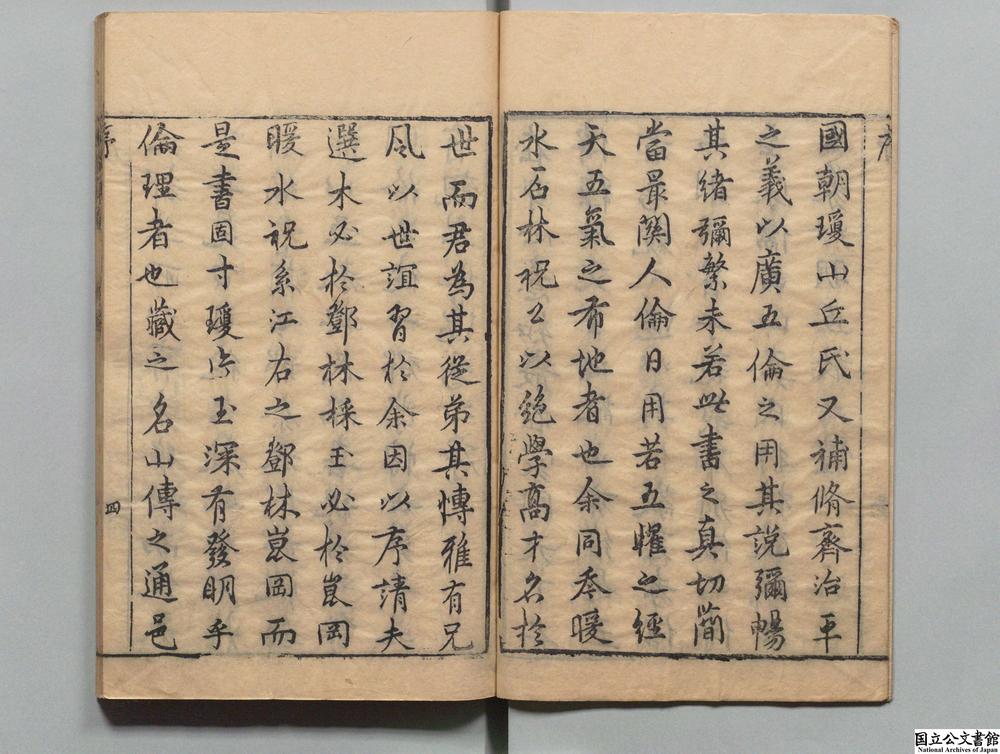 序
國朝瓊山丘氏又補脩齊治平
之義以廣五倫之用其說彌暢
其緒彌繁未若此書之真切簡
當最関人倫日用若五曜之經
天五氣之布地者也余同年暖
水石林祝公以絶學髙才名於
世而君為其從弟其博雅有兄
風以世誼習於余因以序請夫
選木必於鄧林採玉必於崑岡
暖水祝系江右之鄧林崑岡而
是書固寸瓊片玉深有發明乎
倫理者也藏之名山傳之通邑
序
四
国立公文書館
National Archives of Japan